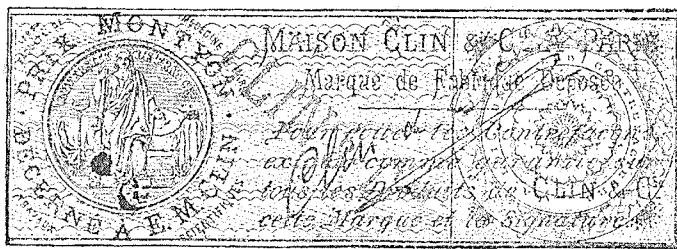 PRIX MONTYON
DÉCERNÉ A E. M. CLIN
MAISON CLIN & Cie A PARIS
Marque de Fabrique Déposée
Pour éviter les Contrefaçons
exiger comme garantie sur
tous les Produits de CLIN & Cie
cette Marque et la Signature
CLIN